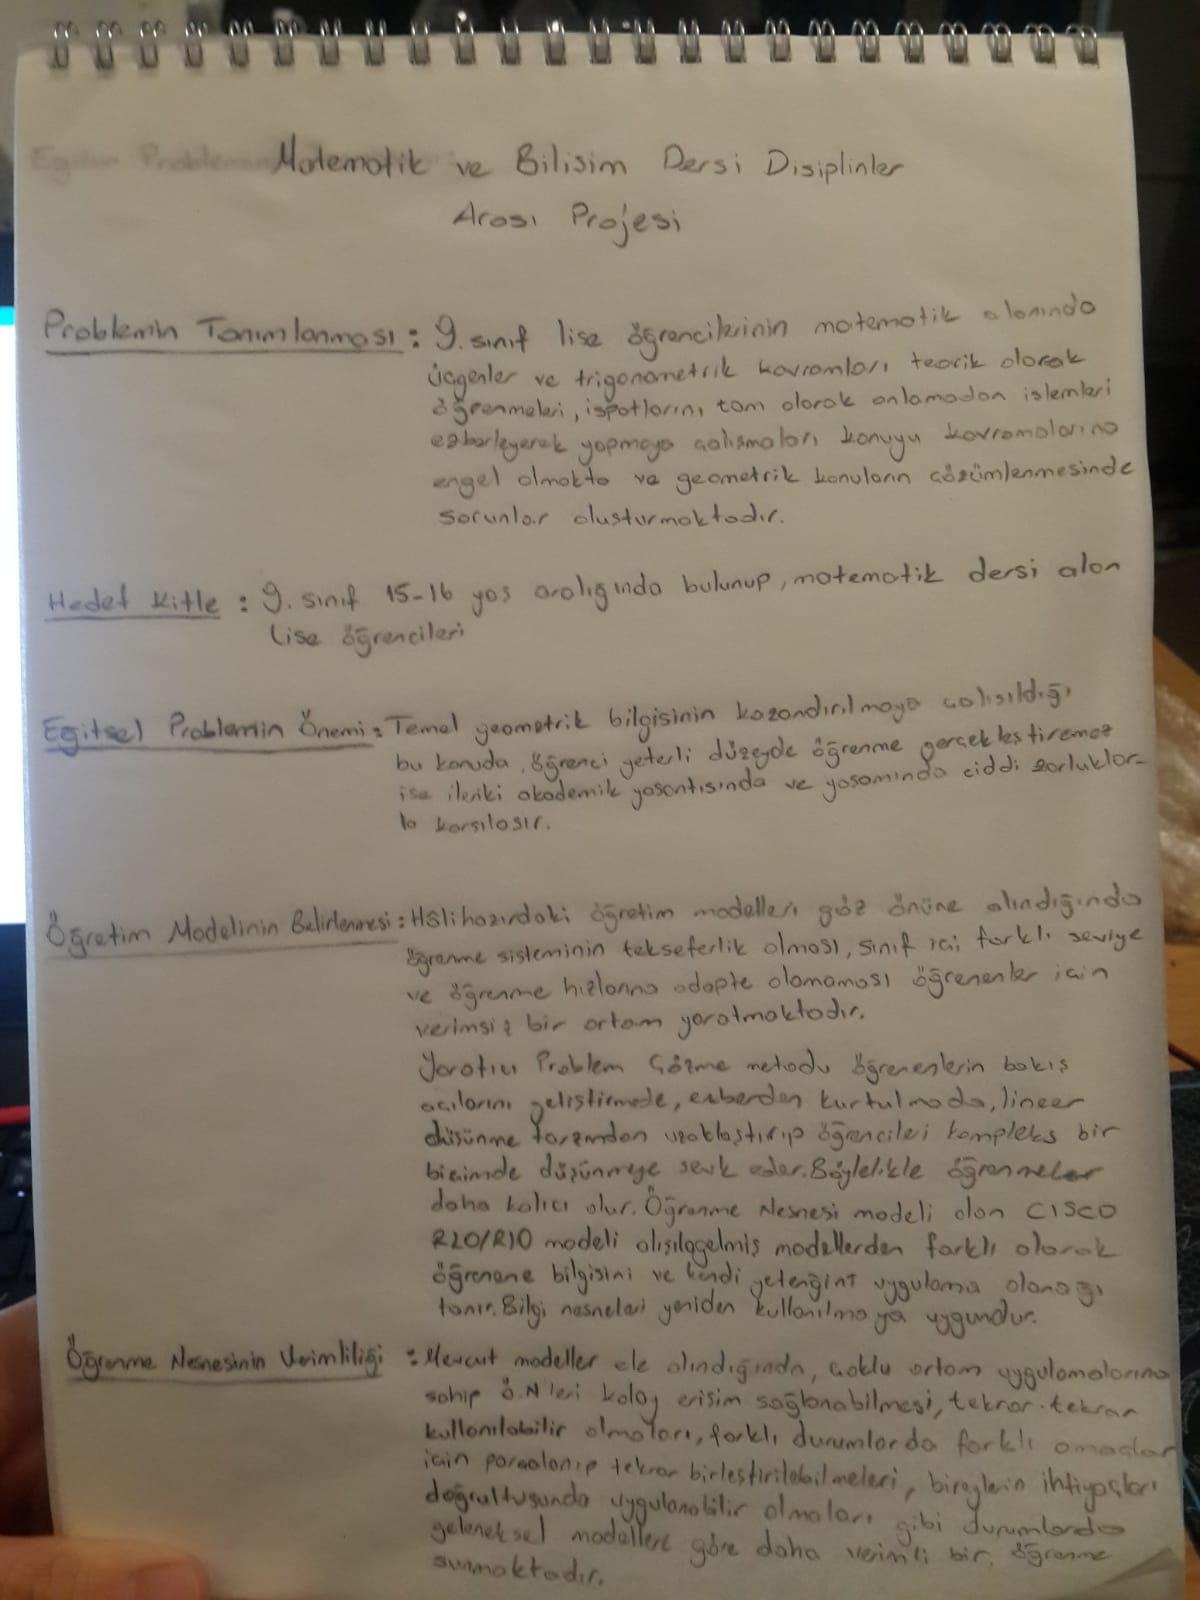 Matematik ve Bilisim Dersi Disiplinler
Arası Projesi
Problemin Tanımlanması : 9. sınıf lise öğrencilerinin matematik alanında
üçgenler ve trigonometrik kavramları teorik olarak
öğrenmeleri, ispatlarını tam olarak anlamadan islemleri
ezberleyerek yapmaya çalısmaları konuyu kavramalarına
engel olmakta ve geometrik konuların çözümlenmesinde
sorunlar olusturmaktadır.
Hedef Kitle : 9. sınıf 15-16 yas aralığında bulunup, matematik dersi alan
Lise öğrencileri
Eğitsel Problemin Önemi : Temel geometrik bilgisinin kazandırılmaya çalısıldığı
bu konuda, öğrenci yeterli düzeyde öğrenme gerçeklestiremez
ise ileriki akademik yasantısında ve yasamında ciddi zorluklar-
la karsılasır.
Öğretim Modelinin Belirlenmesi : Hâlihazırdaki öğretim modelleri göz önüne alındığında
öğrenme sisteminin tekseferlik olması, sınıf içi farklı seviye
ve öğrenme hızlarına adapte olamaması öğrenenler için
verimsiz bir ortam yaratmaktadır.
Yaratıcı Problem Çözme metodu öğrenenlerin bakıs
açılarını gelistirmede, ezberden kurtulmada, lineer
düsünme tarzından uzaklaştırıp öğrencileri kompleks bir
biçimde düşünmeye sevk eder. Böylelikle öğrenmeler
daha kalıcı olur. Öğrenme Nesnesi modeli olan CISCO
RLO/RIO modeli alısılagelmis modellerden farklı olarak
öğrenene bilgisini ve kendi yeteneğini uygulama olanağı
tanır. Bilgi nesneleri yeniden kullanılmaya uygundur.
Öğrenme Nesnesinin Verimliliği : Mevcut modeller ele alındığında, çoklu ortam uygulamalarına
sahip Ö.N'leri kolay erisim sağlanabilmesi, tekrar tekrar
kullanılabilir olmaları, farklı durumlarda farklı amaçlar
için parçalanıp tekrar birlestirilebilmeleri, bireylerin ihtiyaçları
doğrultusunda uygulanabilir olmaları gibi durumlarda
geleneksel modellere göre daha verimli bir öğrenme
sunmaktadır.